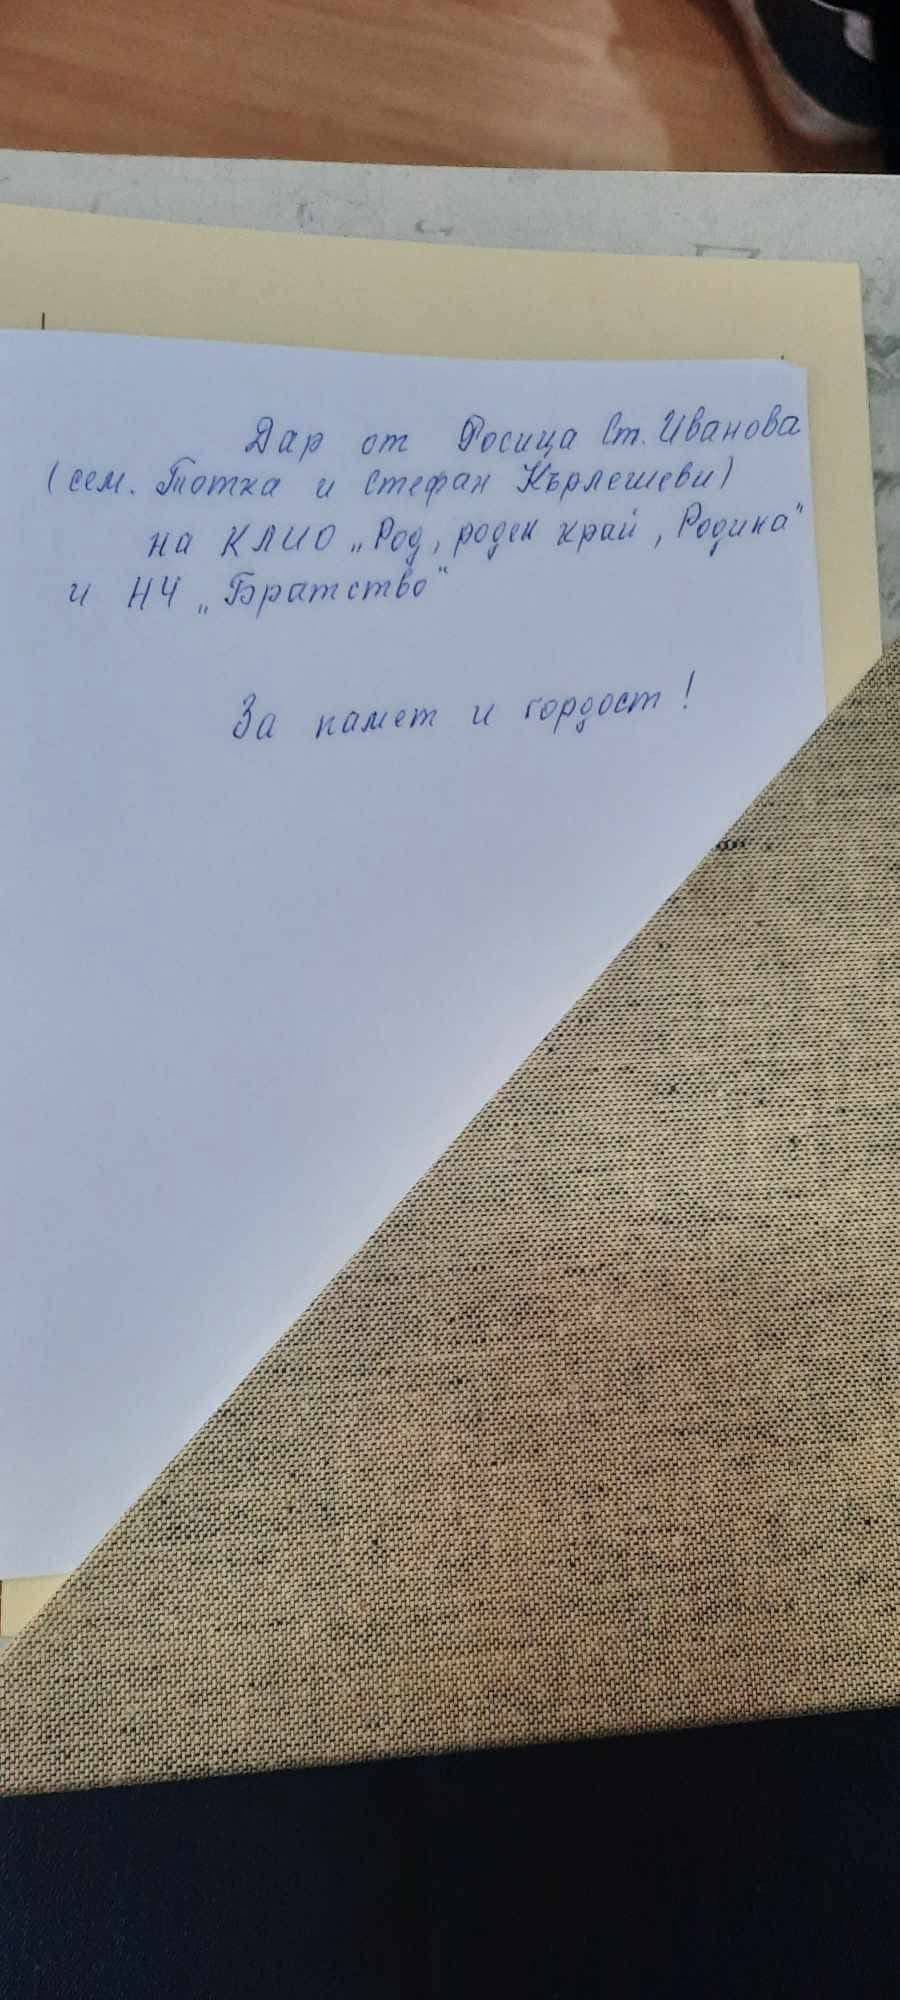 Дар от Росица Ст. Иванова
(сем. Тотка и Стефан Кърлешеви)
на КЛИО „Род, роден край, Родина"
и НЧ „Братство"
За памет и гордост!